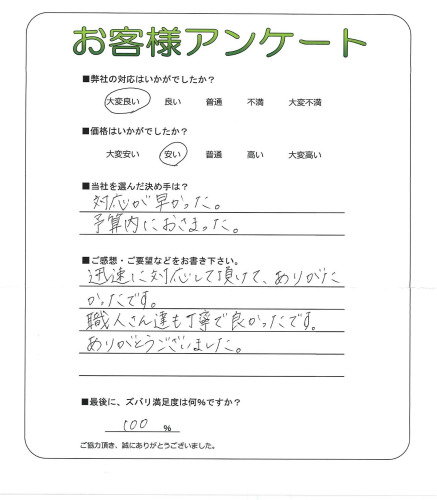 お客様アンケート
■弊社の対応はいかがでしたか？
大変良い 良い 普通 不満 大変不満
■価格はいかがでしたか？
大変安い 安い 普通 高い 大変高い
■当社を選んだ決め手は？
対応が早かった。
予算内におさまった。
■ご感想・ご要望などをお書き下さい。
迅速に対応して頂けて、ありがた
かったです。
職人さん達も丁寧で良かったです。
ありがとうございました。
■最後に、ズバリ満足度は何％ですか？
100 ％
ご協力頂き、誠にありがとうございました。